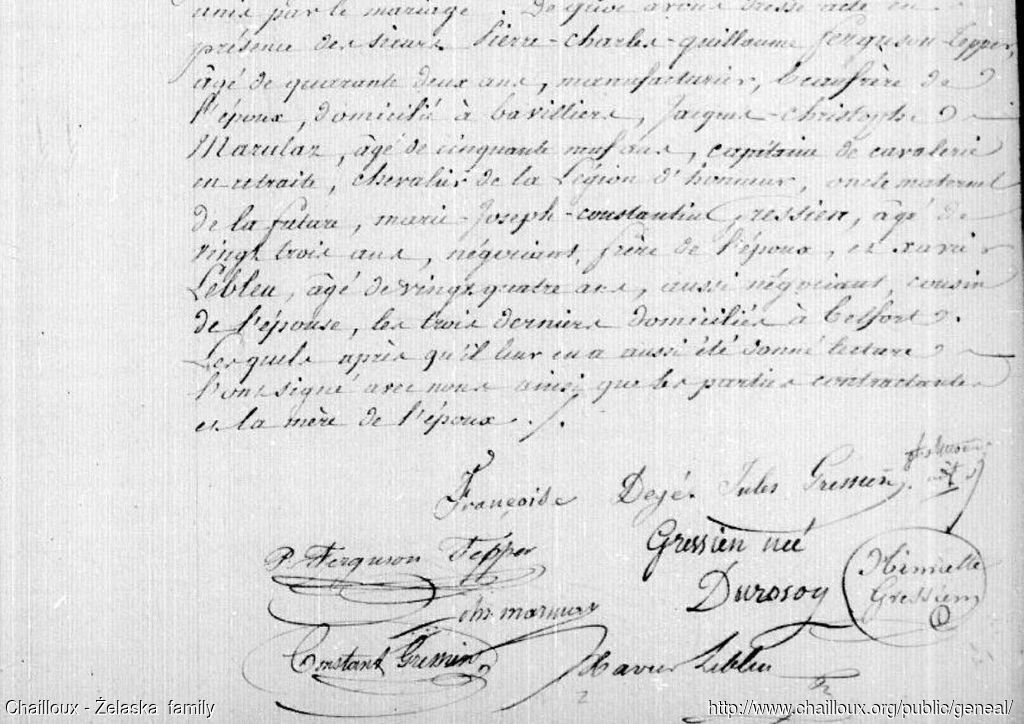 unis par le mariage. De quoi avons dressé acte en
présence des sieurs Pierre-charles-guillaume Ferguson-Tepper,
âgé de quarante deux ans, manufacturier, beaufrère de
l'époux, domicilié à bavilliers, Jacques-christophe de
Marulaz, âgé de cinquante neuf ans, capitaine de cavalerie
en retraite, chevalier de la Légion d'honneur, oncle maternel
de la future, marie-Joseph-constantin Gressien, âgé de
vingt trois ans, négociant, frère de l'époux, et xavier
Lebleu, âgé de vingt quatre ans, aussi négociant, cousin
de l'épouse, les trois derniers domiciliés à belfort.
Lesquels après qu'il leur en a aussi été donné lecture
l'ont signé avec nous ainsi que les parties contractantes
et la mère de l'époux ./.
Françoise Dezé. Jules Gressien
P. Ferguson Tepper Gressien née
Durosoy Henriette
Gressien
Constant Gressien Xavier Lebleu
Chailloux - Żelaska family http://www.chailloux.org/public/geneal/